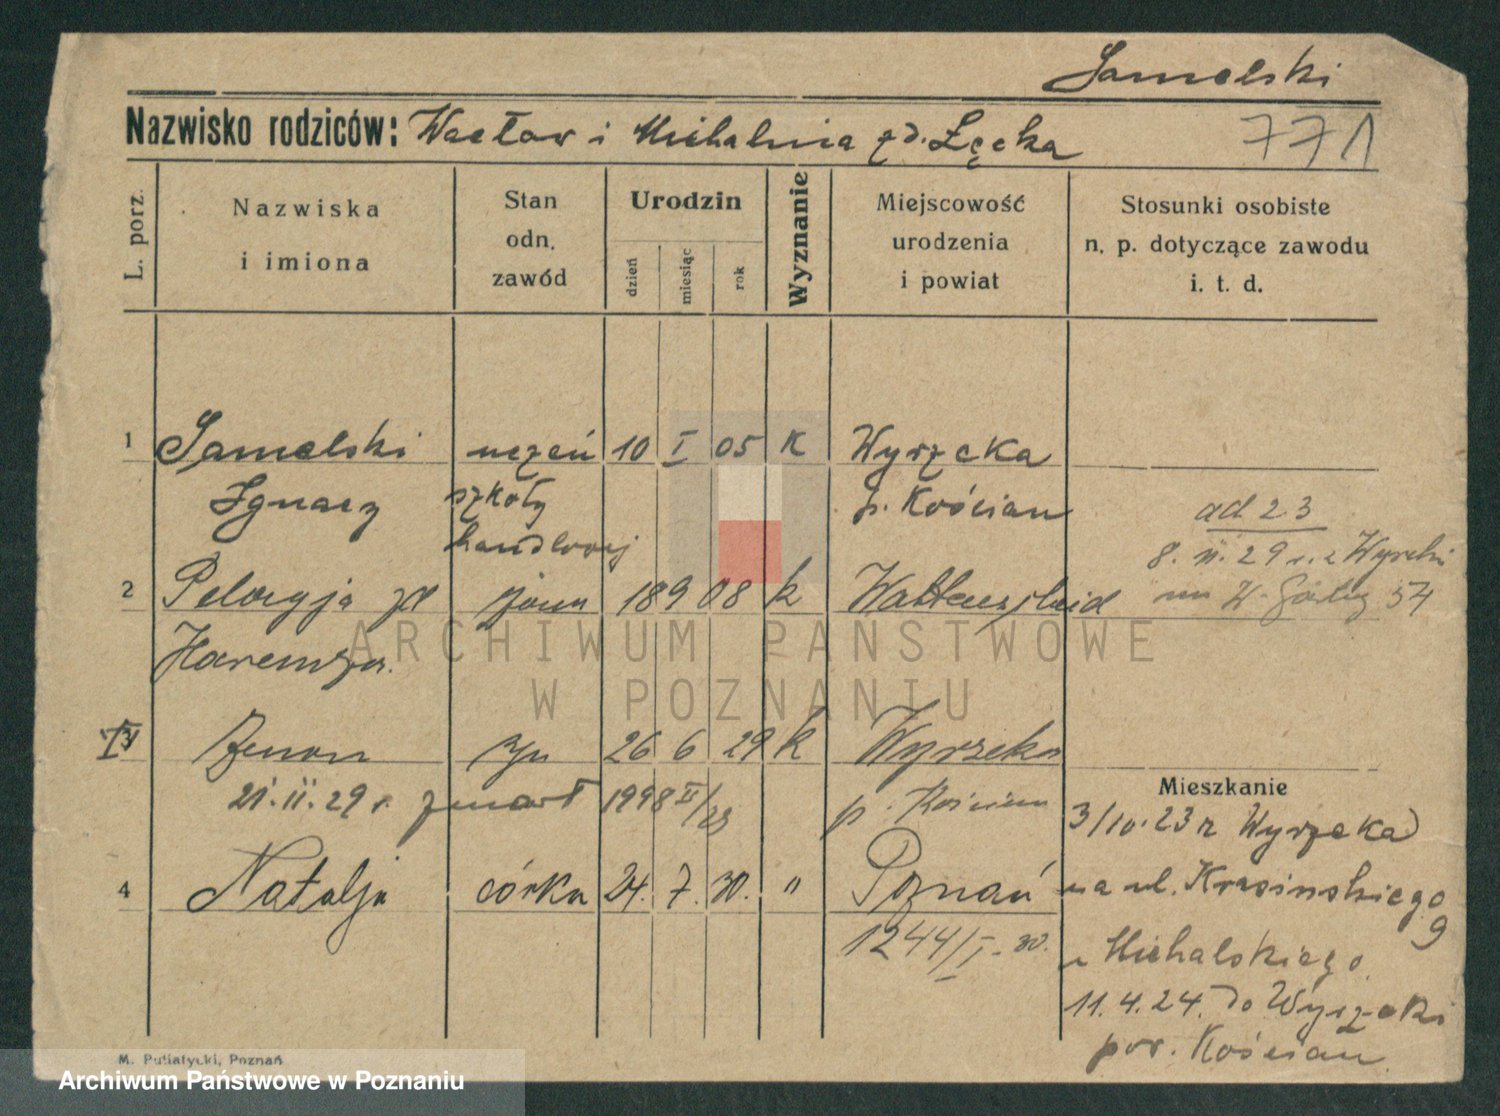 Samolski
Nazwisko rodziców: Wacław i Michalina zd. Łęcka
771
L. porz.
Nazwiska
i imiona
Stan
odn.
zawód
Urodzin
dzień
miesiąc
rok
Wyznanie
Miejscowość
urodzenia
i powiat
Stosunki osobiste
n. p. dotyczące zawodu
i. t. d.
1 Samolski uczeń 10 I 05 K Wyrzeka
Ignacy szkoły p. Kościan
handlowej
ad 23
8. II. 29 r. z Wyrzeki
54
2 Pelagja zd żona 18 9 08 k
Haremza
3 Zenon syn 26 6 29 k Wyrzeka
21. II. 29 r. zmarł 1998 II/29 p. Kościan
4 Natalja córka 24. 7. 30. " Poznań
1244/I - 30.
Mieszkanie
3/10. 23 z Wyrzeka
na ul. Krasińskiego
9
u Michalskiego
11. 4. 24. do Wyrzeki
pow. Kościan
M. Putiatycki, Poznań
ARCHIWUM PAŃSTWOWE
W POZNANIU
Archiwum Państwowe w Poznaniu